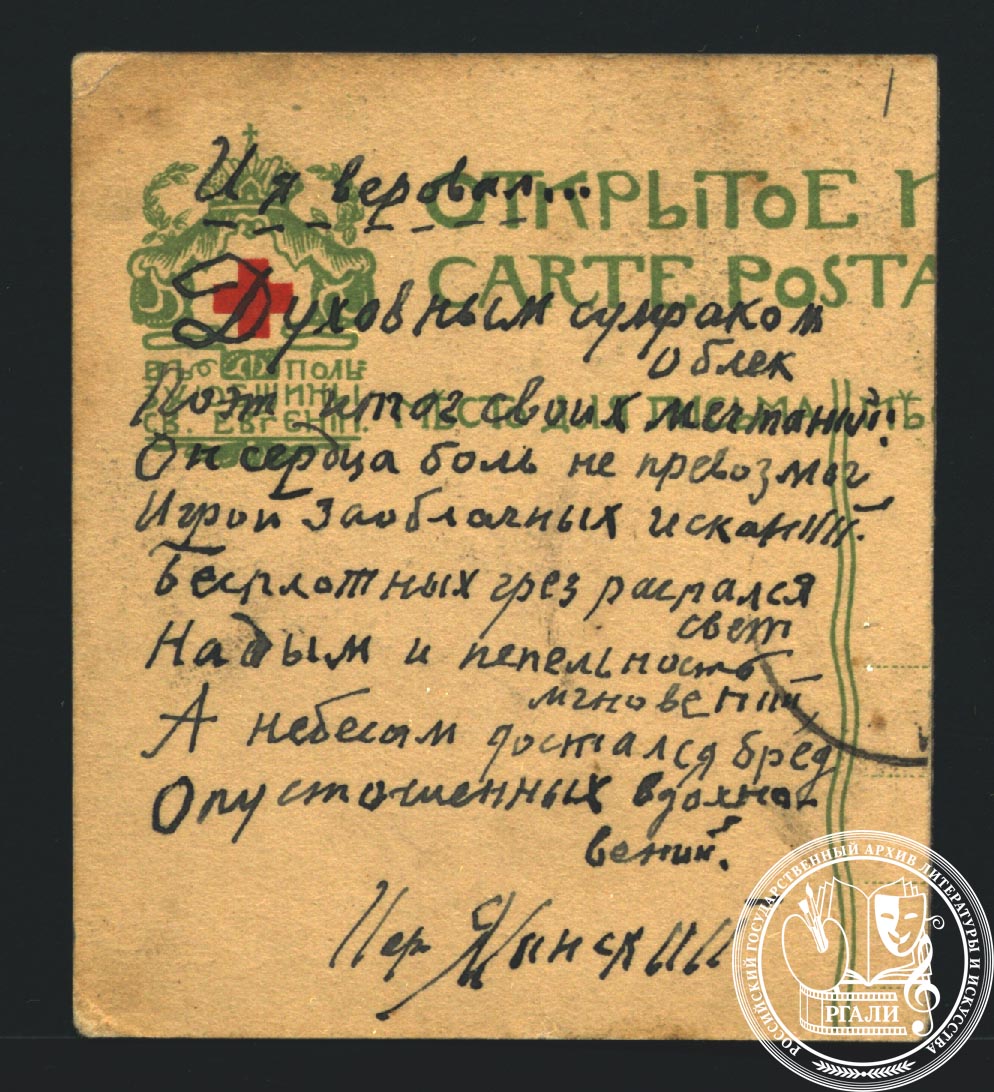 И я веровал...
ОТКРЫТОЕ П
CARTE POSTA
Духовным сумраком
облек
ВЪ ПОЛЬ
ОБЩИНЫ
СВ. ЕВГЕНІИ.
Поэт итог своих мечтаний!
МѢСТО ДЛЯ ПИСЬМА
Он сердца боль не превозмог
Игрой заоблачных исканий.
Бесплотных грез распался
свет
На дым и пепельность
мгновений,
А небесам достался бред
Опустошенных вдохно-
вений.
РОССИЙСКИЙ ГОСУДАРСТВЕННЫЙ АРХИВ ЛИТЕРАТУРЫ И ИСКУССТВА
РГАЛИ